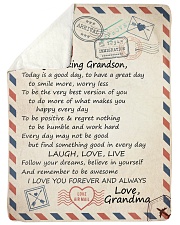 ARRIVED
IMMIGRATION
ding Grandson,
Today is a good day, to have a great day
to smile more, worry less
To be the very best version of you
to do more of what makes you
happy every day
To be positive & regret nothing
to be humble and work hard
Every day may not be good
but find something good in every day
LAUGH, LOVE, LIVE
Follow your dreams, believe in yourself
And remember to be awesome
I LOVE YOU FOREVER AND ALWAYS
Love,
Grandma
AIR MAIL